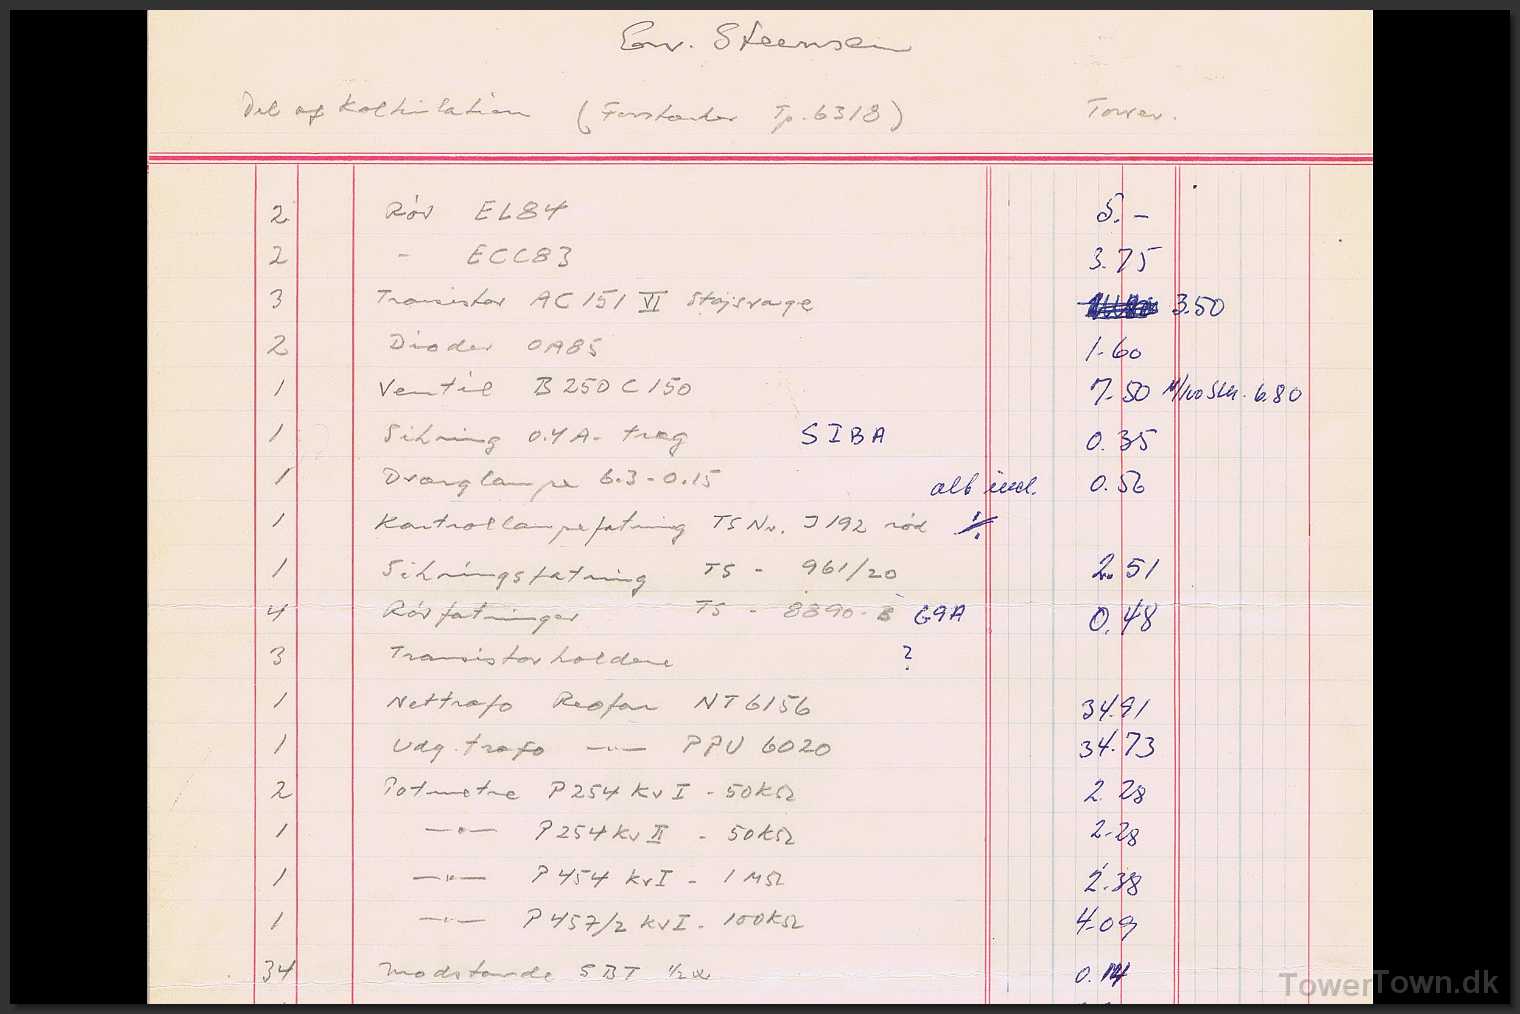 Env. Steensen
Del af Kalkulation (Forstærker Tp. 6318) Tower.
2 Rör EL84 5.-
2 - ECC83 3.75
3 Transistor AC151 VI Støjsvage 3.50
2 Dioder OA85 1.60
1 Ventil B250C150 7.50 v/100 stk. 6.80
1 Sikring 0.4A - træg SIBA 0.35
1 Dværglampe 6.3-0.15 alt incl. 0.56
1 Kontrollampefatning TS Nr. J192 rød
1 Sikringsfatning TS - 961/20 2.51
4 Rörfatninger TS - 8890-B G9A 0.48
3 Transistorholdere ?
1 Nettrafo Reofon NT6156 34.91
1 Udg. trafo —"— PPU 6020 34.73
2 Potmetre P254 Kv I - 50KΩ 2.28
1 —"— P254 Kv II - 50KΩ 2.28
1 —"— P454 Kv I - 1MΩ 2.38
1 —"— P457/2 Kv I - 100KΩ 4.09
34 Modstande SBT ½W 0.14
TowerTown.dk